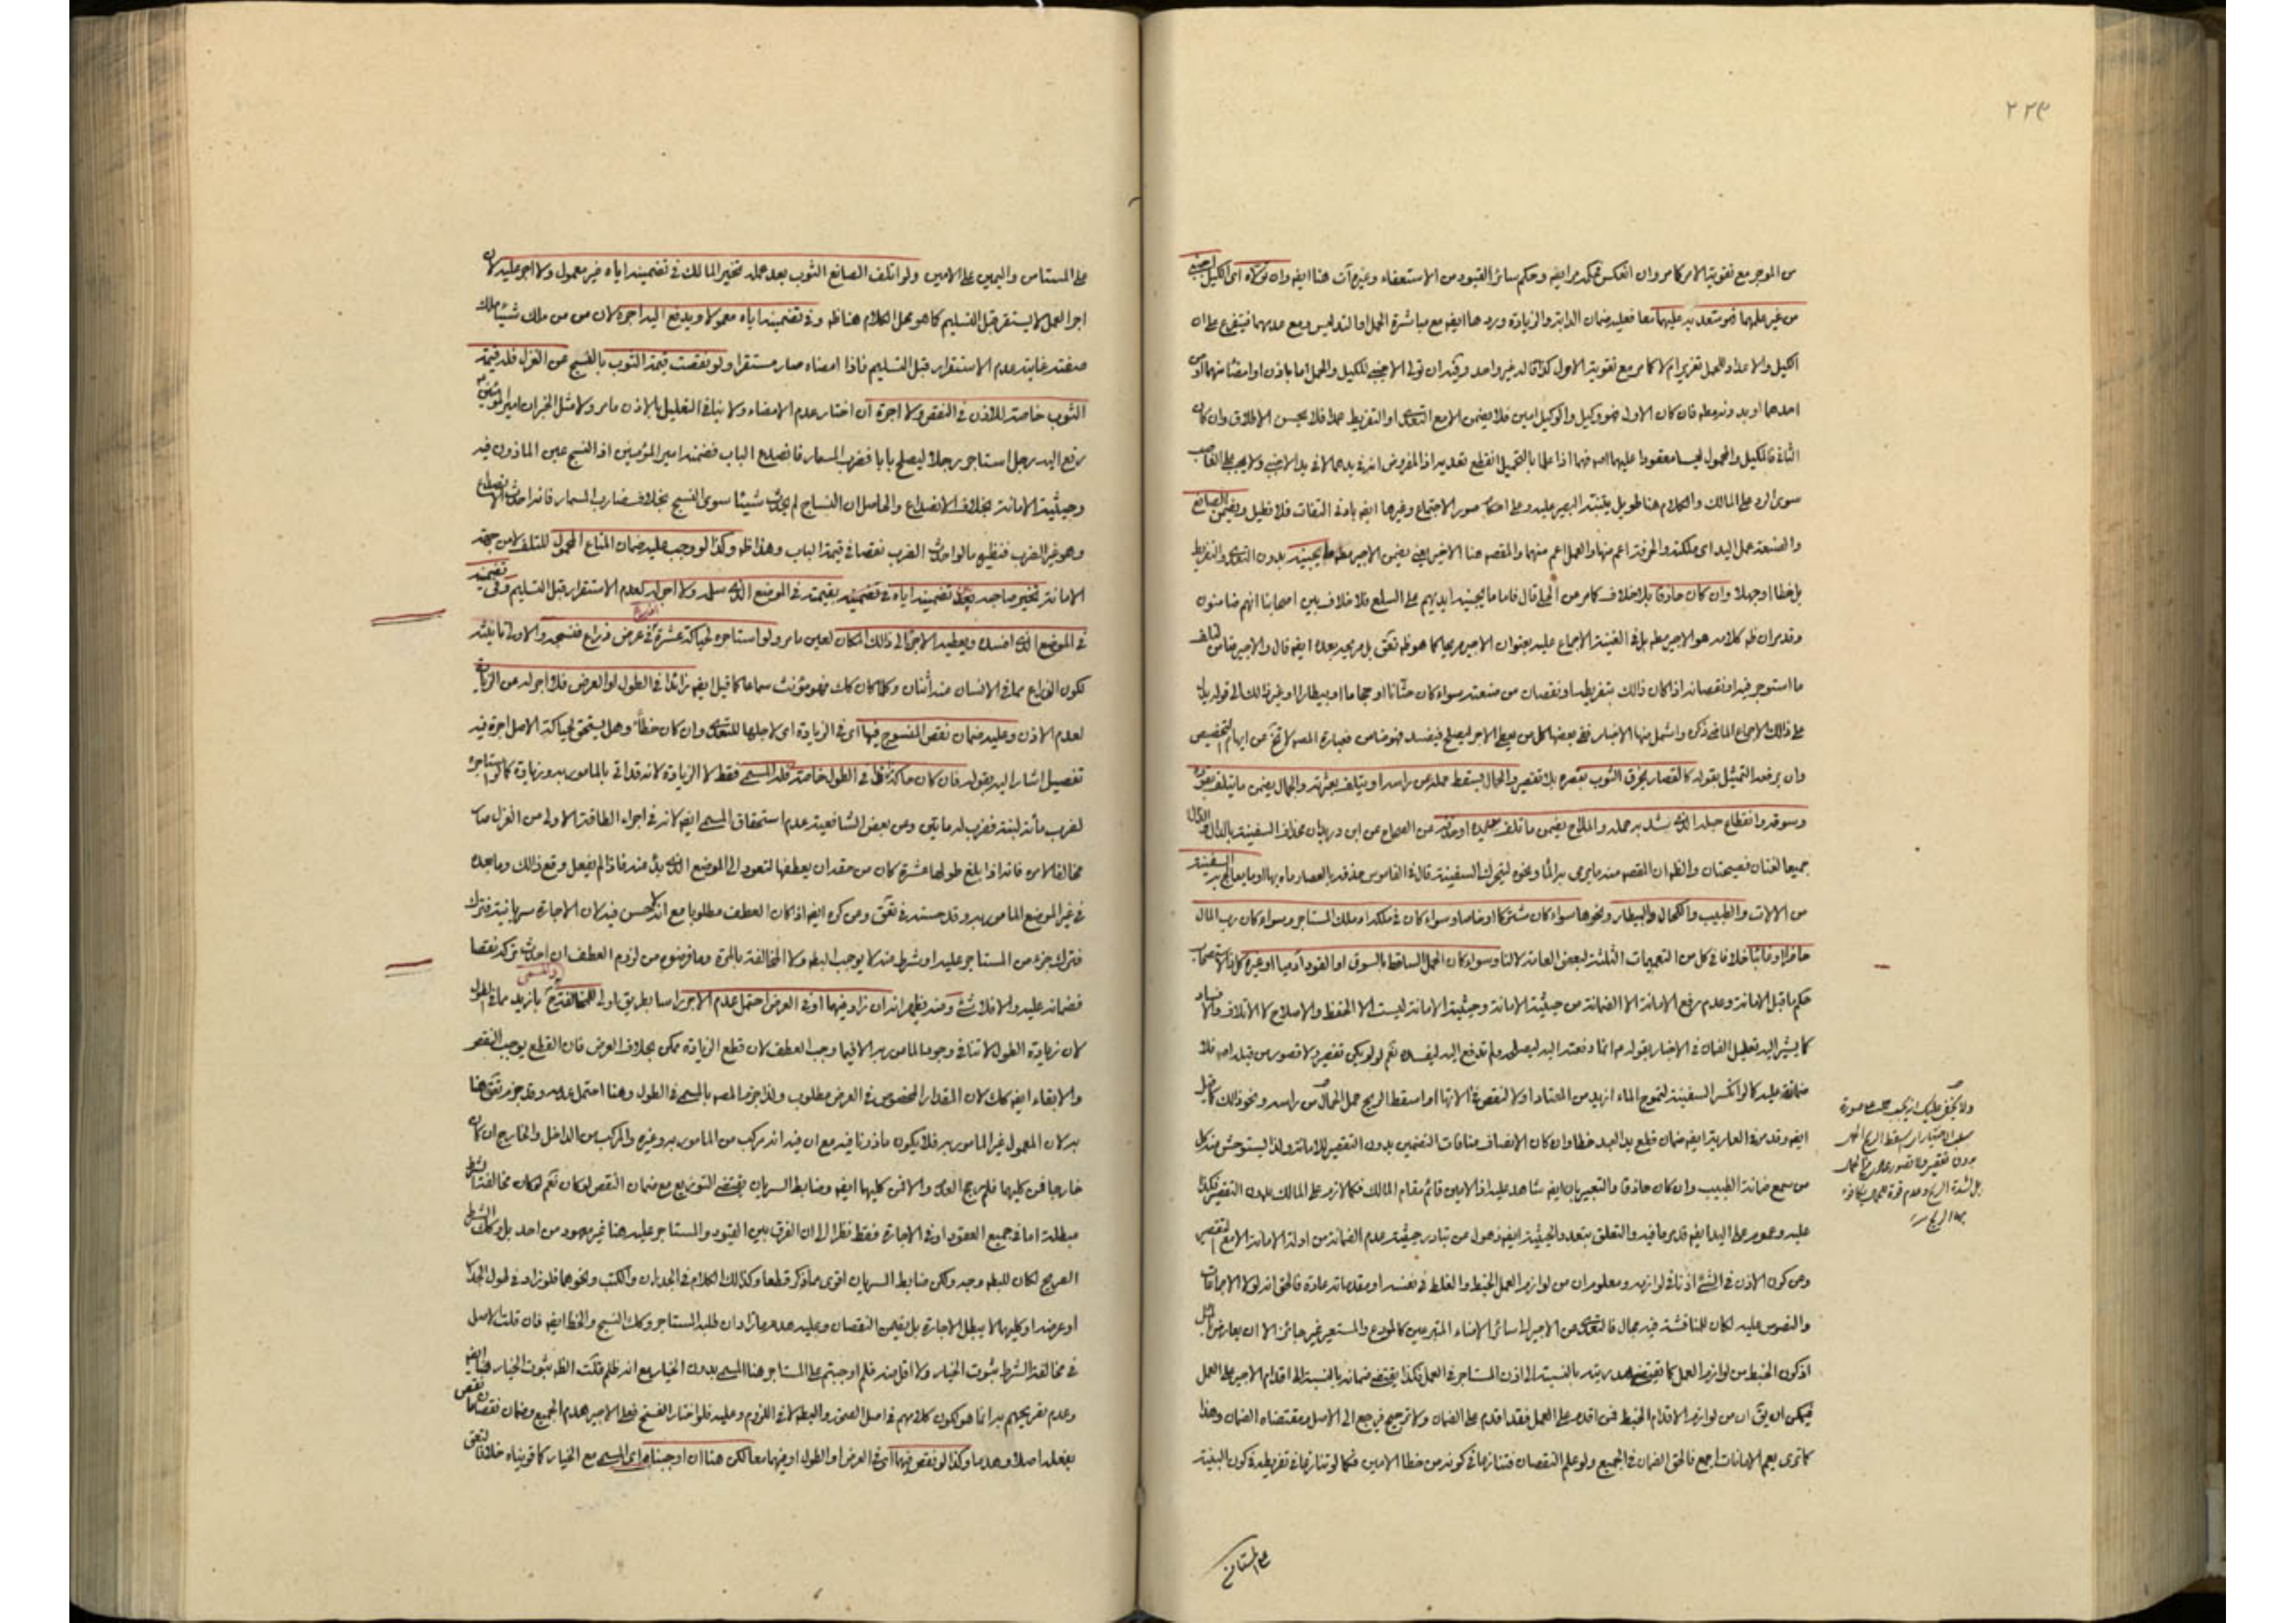 ٢٢٩
من الموجر مع تقوية الامر كامر وان انعكس فحكمه مر ايضه وحكم سائر القيود من الاستعفاء وغيره آت هنا ايضه وان تولاه اى الكيل اجنبى
من غير علمهما فهو متعد به عليهما معا فعليه ضمان الدابة والزيادة وردها ايضه مع مباشرة الحمل او التدليس ومع عدمهما فيتفرع على ان
الكيل والاعداد للحمل تغرير ام لا كامر مع تقوية الاول كذا قاله غير واحد وقيد ان تولى الاجنبى للكيل والحمل اما باذن او امضاء منهما او من
احدهما او بدونه مطه فان كان الاول فهو وكيل والوكيل امين فلا يضمن الا مع التعدى او التفريط عمدا فلا يحسن الاطلاق وان كان
الثانى فالمكيل والمحمول ليسا معقودا عليهما فهما اذا علما بالتحميل انقطع تعديه اذ المفروض انه فى يدهما لا فى يد الاجنبى ولا يجب على الغاصب
سوى الرد على المالك والكلام هنا طويل يتنبه البصير عليه وعلى احكام صور الاجتماع وغيرها ايضه بادنى التفات فلا نطيل ويضمن الصانع
والصنعة عمل اليد اى ملكته والحرفة اعم منها والعمل اعم منهما والمقصه هنا الاخير يعنى يضمن الاجير مطه ما يجنيه بيده بدون التعدى والتفريط
بل خطا او جهلا وان كان حاذقا بلا خلاف كامر عن الحلى قال فاما ما يجنيه ايديهم على السلع فلا خلاف بين اصحابنا انهم ضامنون
وقد مر ان ظه كلامه هو الاجير مطه بل فى الغنية الاجماع عليه بعنوان الاجير صريحا كما هو ظه تعق بل صريحه بعده ايضه قال والاجير ضامن لتلف
ما استوجر فيه او نقصانه اذا كان ذالك بتفريطه او نقصان من صنعته سواء كان ختانا او حجاما او بيطارا او غير ذالك الى قوله يدل
على ذالك الاجماع الماضى ذكره واشمل منها الاخبار ففى بعضها كل من يعطى الاجر ليصلح فيفسد فهو ضامن فعبارة المصه لا تخ عن ايهام التخصيص
وان يرفعه التمثيل بقوله كالقصار يخرق الثوب بقصره بلا تقصير والحمال يسقط حمله عن راسه او يتلف بعثرته والجمال يضمن ما يتلف بقوده
وسوقه وانقطاع حبله الذى يشد به حمله والملاح يضمن ما تلف بيده او جذفه عن الصحاح عن ابن دريد ان مجداف السفينة بالدال والذال
جميعا لغتان فصيحتان والظه ان المقصه منه ما يرمى به الماء ونحوه لتحرك السفينة قال فى القاموس جذفه بالعصا رماه بها او ما يعالج به السفينة
من الالات والطبيب والكحال والبيطار ونحوها سواء كان مشتركا او خاصا وسواء كان فى ملكه او ملك المستاجر وسواء كان رب المال
حاضرا او غائبا خلافا فى كل من التعميمات الثلثة لبعض العامة لا لنا وسواء كان الحمل الساقط بالسوق او القود آدميا او غيره كل ذا لاستصحاب
حكم ما قبل الامانة وعدم رفع الامانة الا الضمانة من حيثية الامانة وحيثية الامانة ليست الا الحفظ والاصلاح لا الاتلاف والافساد
كما يشير اليه تعليل الضمان فى الاخبار بقوله مه انما دفعته اليه ليصلحه ولم تدفع اليه ليفسده نعم لو لم يكن تقصير ولا قصور من قبله اصه فلا
ضمانة عليه كما لو انكسر السفينة لتموج الماء ازيد من المعتاد او لا لنقص فى آلاتها او اسقط الريح حمل الحمال من راسه ونحو ذالك كما قيل
ايضه وقد مر فى العارية ايضه ضمان قلع يد العبد خطا وان كان الانصاف منافات التضمين بدون التقصير للامانة ولذا ليستوحش منه كل
من سمع ضمانة الطبيب وان كان حاذقا والتعبير بان ايضه شاهد عليه اذ الامين قائم مقام المالك فكما لا يرد على المالك بدون التقصير فكذا
عليه وعموم على اليد ايضه قد مر ما فيه والتعلق بتعدد الحيثية ايضه ذهول عن تبادر حيثية عدم الضمانة من ادلة الامانة الا مع التقصير
وعن كون الاذن فى الشئ اذنا فى لوازمه ومعلوم ان من لوازم العمل الخبط والغلط فى نفسه او مقدماته عادة فالحق انه لولا الاجماعات
والنصوص عليه لكان للمناقشة فيه مجال فالتعدى من الاجير الى سائر الامناء المتبرعين كالمودع والمستعير غير جائز الا ان يعارض بالمثل
اذ كون الخبط من لوازم العمل كما يقتضى هدريته بالنسبة الى اذن المستاجر فى العمل فكذا يقتضى ضمانه بالنسبة الى اقدام الاجير على العمل
فيمكن ان يق ان من لوازم الاقدام الخبط فمن اقدم على العمل فقد اقدم على الضمان ولا ترجيح فيرجع الى الاصل ومقتضاه الضمان وهذا
كما ترى يعم الامانات اجمع فالحق الضمان فى الجميع ولو علم النقصان فتنازعا فى كونه من خطا الامين فكما لو تنازعا فى تفريطه فى كون البينة
على المستامن
ولا يخفى عليك انه يجب حمل صورة
اسقط الريح الحمل
بدون تقصير ولا قصور
بل لشدة الريح وعدم قوة
بهذا الريح
على المستامن واليمين على الامين ولو اتلف الصانع الثوب بعد عمله تخير المالك فى تضمينه اياه غير معمول ولا اجر عليه لان
اجر العمل لا يستقر قبل التسليم كما هو محل الكلام هنا ظه وفى تضمينه اياه معمولا ويدفع اليه اجره لان من ملك شيئا ملك
صفته غايته عدم الاستقرار قبل التسليم فاذا امضاه صار مستقرا ولو نقصت قيمة الثوب بالنسج عن الغزل فله قيمة
الثوب خاصة للاذن فى النقص ولا اجرة ان اختار عدم الامضاء ولا ينافى التعليل بالاذن مامر ولا مثل الخبر ان امير المؤمنين
رفع اليه رجل استاجر رجلا ليصلح بابا فضرب المسمار فانصدع الباب فضمنه امير المؤمنين اذ النسج عين الماذون فيه
وحيثية الامانة بخلاف الانصداع والحاصل ان النساج لم يحدث شيئا سوى النسج بخلاف ضارب المسمار فانه احدث الانصداع
وهو غير الضرب فنظيره ما لو احدث الضرب نقصا فى قيمة الباب وهذا ظه وكذا لو وجب عليه ضمان المتاع المحمول للتلف لا من جهة
الامانة تخير صاحبه بعد تضمينه اياه فى تضمينه بقيمته فى الموضع الذى سلمه ولا اجر له لعدم الاستقرار قبل التسليم وفى تضمينه
فى الموضع الذى افسده ويعطيه الاجر الى ذالك المكان لعين مامر ولو استاجره لحياكة عشرة اذرع فى عرض ذراع فنسجه والاولى تانيثه
لكون الذراع مما فى الانسان منه اثنان وكلما كان كك فهو مؤنث سماعا كما قيل ايضه زائدا فى الطول او العرض فلا اجر له عن الزيادة
لعدم الاذن وعليه ضمان نقص المنسوج فيها اى فى الزيادة اى لاجلها للتعدى وان كان خطأ وهل يستحق لحياكة الاصل اجرة فيه
تفصيل اشار اليه بقوله فان كان حاكه زائدا فى الطول خاصة فله المسمى فقط لا الزيادة لانه قد اتى بالمامور به وزيادة كما لو استاجره
لضرب مأئة لبنة فضرب له مايتين وعن بعض الشافعية عدم استحقاق المسمى ايضه لانه فى اجراء الطاقة الاولى من الغزل صار
مخالفا لامره فانه اذا بلغ طولها عشرة كان من حقه ان يعطفها لتعود الى الموضع الذى بدأ منه فاذا لم يفعل وقع ذالك وما بعده
فى غير الموضع المامور به وقد حسنه فى تعق وعن كره ايضه اذا كان العطف مطلوبا مع انه لا حسن فيه لان الاجارة سريانية فترك
فترك جزء من المستاجر عليه او شرط منه لا يوجب البطه ولا المخالفة بالمرة وما فرضوه من لزوم العطف ان احدث تركه نقصا
فضمانه عليه والا فلا شئ ومنه يظهر انه ان زاد فيهما او فى العرض احتمل عدم الاجر راسا بطريق اولى للمخالفة ح بازيد مما فى الطول
لان زيادة الطول لا تنافى وجود المامور به الا فيما وجب العطف لان قطع الزيادة ممكن بخلاف العرض فان القطع يوجب النقص
والابقاء ايضه كك لان المقدار المخصوص فى العرض مطلوب ولذا جزم المصه بالمسمى فى الطول وهنا احتمل عدمه وقد جزم تعق هنا
به لان المعمول غير المامور به فلا يكون ماذونا فيه مع ان فيه انه مركب من المامور به وغيره والمركب من الداخل والخارج ان كان
خارجا فمن كليهما فلم يرجح الاول والا فمن كليهما ايضه وضابط السريان يقتضى التوزيع مع ضمان النقص لو كان نعم لو كان مخالفة الشرط
مبطلة اما فى جميع العقود او فى الاجارة فقط نظرا الى ان الفرق بين القيود والمستاجر عليه هنا غير معهود من احد بل وكك الشرط
الصريح لكان للبطه وجه ولكن ضابط السريان اقوى مما ذكر قطعا وكذالك الكلام فى الجدران والكتب ونحوها فلو زاد فى طول الجدار
او عرضه او كليهما لا يبطل الاجارة بل يضمن النقصان وعليه هدم ما زاد ان طلبه المستاجر وكك النسج والخط ايضه فان قلت الاصل
فى مخالفة الشرط ثبوت الخيار ولا اقل منه فلم اوجبتم على المستاجر هنا المسمى بدون الخيار مع انه ظلم قلت الظه ثبوت الخيار هنا ايضه
وعدم تصريحهم به انما هو لكون كلامهم فى اصل الصحة والبطه لا فى اللزوم وعليه فلو اختار الفسخ فعلى الاجير هدم الجميع وضمان نقصان ما نقص
بفعله اصلا وهدما وكذا لو نقص فيهما اى فى العرض او الطول او فيهما معا لكن هنا ان اوجبنا له اى المسمى مع الخيار كما قويناه خلافا لتعق